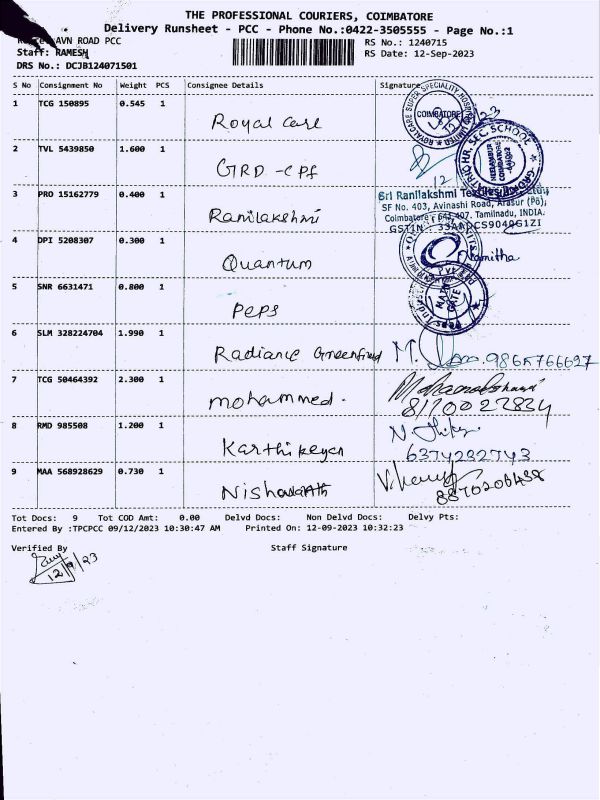 THE PROFESSIONAL COURIERS, COIMBATORE
Delivery Runsheet - PCC - Phone No.:0422-3505555 - Page No.:1
AVN ROAD PCC
RS No.: 1240715
Staff: RAMESH
RS Date: 12-Sep-2023
DRS No.: DCJB124071501
S No Consignment No Weight PCS Consignee Details Signature
1 TCG 150895 0.545 1 Royal Care
COIMBATORE
2 TVL 5439850 1.600 1 GRD - CPF
12
3 PRO 15162779 0.400 1 Ranilakshmi
Sri Ranilakshmi Textiles
SF No. 403, Avinashi Road, Arasur (P6),
Coimbatore - 641 407. Tamilnadu, INDIA.
4 DPI 5208307 0.300 1 Quantum Namitha
5 SNR 6631471 0.800 1 Peps
6 SLM 328224704 1.990 1 Radiance Greenfield
7 TCG 50464392 2.300 1 mohammed.
8 RMD 985508 1.200 1 Karthikeyan
6374232743
9 MAA 568928629 0.730 1
Tot Docs: 9 Tot COD Amt: 0.00 Delvd Docs: Non Delvd Docs: Delvy Pts:
Entered By :TPCPCC 09/12/2023 10:30:47 AM Printed On: 12-09-2023 10:32:23
Verified By Staff Signature
12/9/23